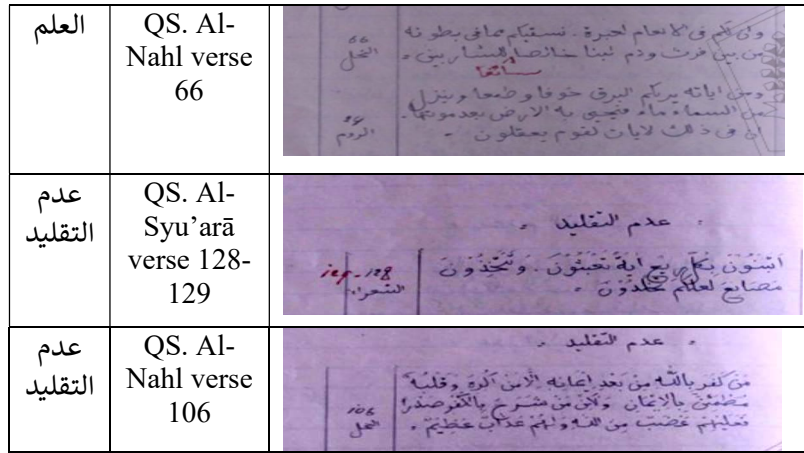 العلم
QS. Al-
Nahl verse
66
وان لكم فى الانعام لعبرة . نسقيكم مما فى بطونه
من بين فرث ودم لبنا خالصا للشاربين .
سائغا
66
النحل
ومن اياته يريكم البرق خوفا وطمعا وينزل
من السماء ماء فيحيى به الارض بعد موتها .
ان فى ذلك لايات لقوم يعقلون .
الروم
عدم
التقليد
QS. Al-
Syu’arā
verse 128-
129
. عدم التقليد .
اَتَبْنُوْنَ بِكُلِّ رِيْعٍ ايَةً تَعْبَثُوْنَ . وَتَتَّخِذُوْنَ
مَصَانِعَ لَعَلَّكُمْ تَخْلُدُوْنَ .
الشعراء
عدم
التقليد
QS. Al-
Nahl verse
106
. عدم التقليد .
مَنْ كَفَرَ بِاللّٰهِ مِنْ بَعْدِ اِيْمَانِهِ اِلَّا مَنْ اُكْرِهَ وَقَلْبُهُ
مُطْمَئِنٌّ بِالْاِيْمَانِ وَلٰكِنْ مَنْ شَرَحَ بِالْكُفْرِ صَدْرًا
فَعَلَيْهِمْ غَضَبٌ مِنَ اللّٰهِ وَلَهُمْ عَذَابٌ عَظِيْمٌ .
106
النحل